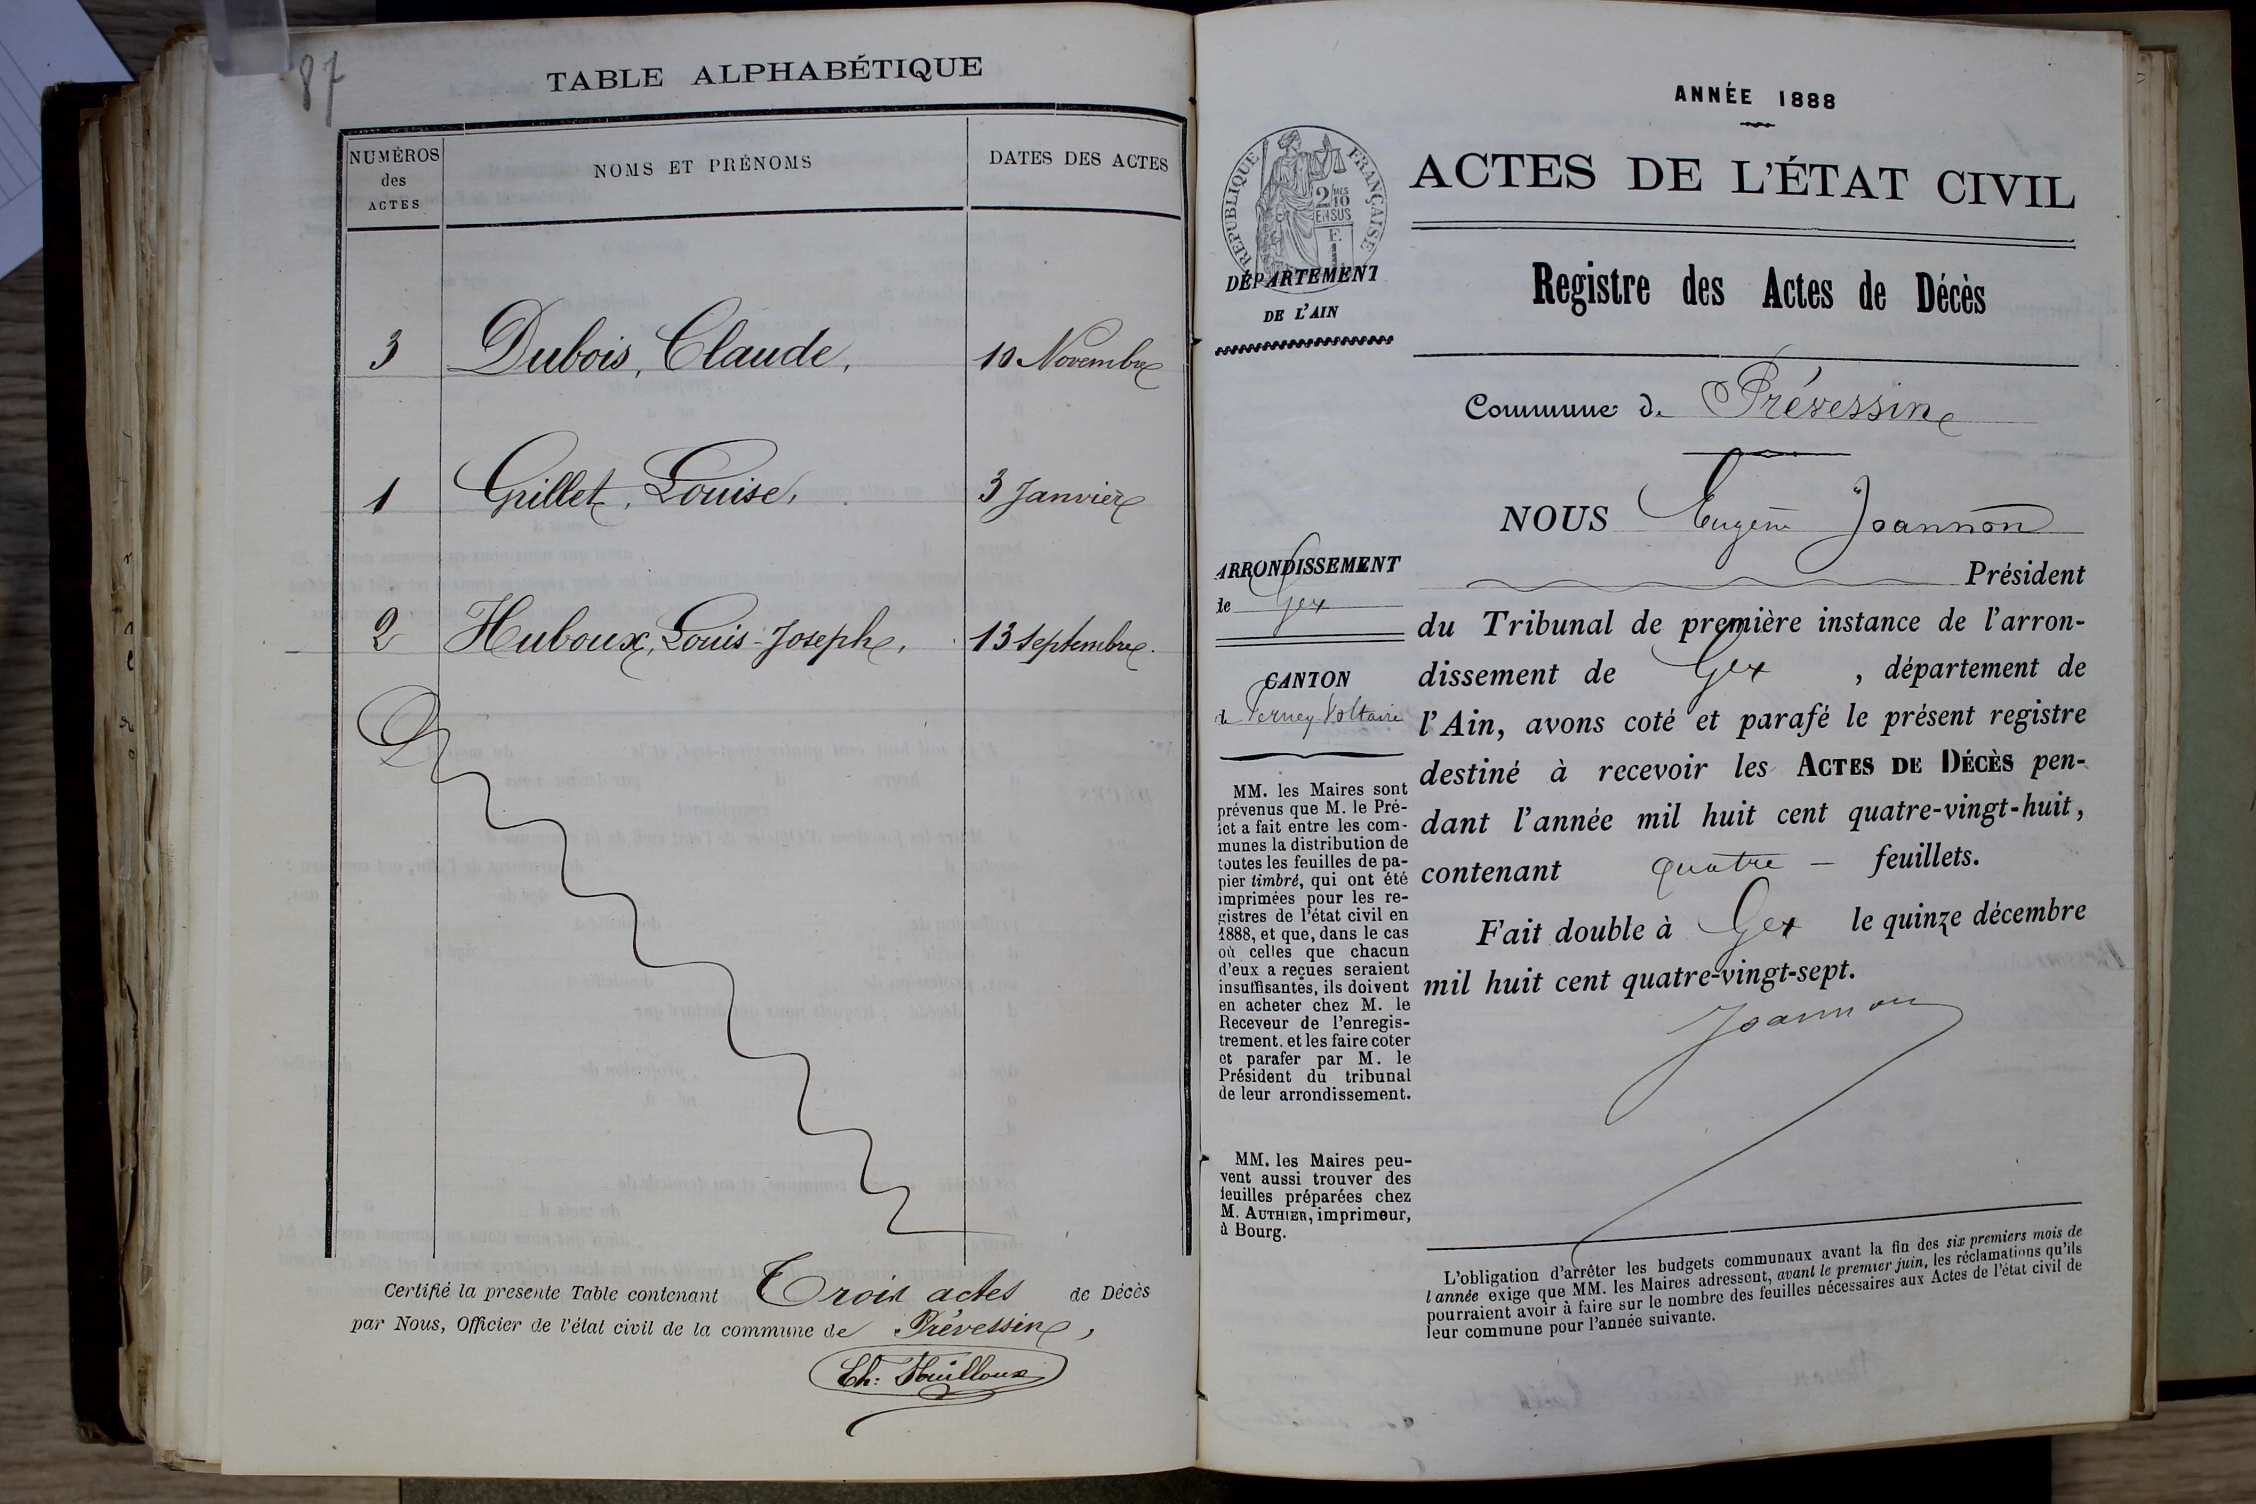 87
TABLE ALPHABÉTIQUE
NUMÉROS
des
ACTES
NOMS ET PRÉNOMS
DATES DES ACTES
3 Dubois, Claude, 10 Novembre
1 Grillet, Louise, 3 Janvier
2 Huboux, Louis-Joseph, 13 Septembre.
Certifié la presente Table contenant Trois actes de Décès
par Nous, Officier de l'état civil de la commune de Prévessin,
Ch:
ANNÉE 1888
ACTES DE L'ÉTAT CIVIL
RÉPUBLIQUE FRANÇAISE
2 MES
10
EN SUS
F.
1
DÉPARTEMENT
DE L'AIN
Registre des Actes de Décès
Commune de Prévessin
NOUS Eugène Joannon
Président
du Tribunal de première instance de l'arron-
dissement de Gex, département de
l'Ain, avons coté et parafé le présent registre
destiné à recevoir les ACTES DE DÉCÈS pen-
dant l'année mil huit cent quatre-vingt-huit,
contenant quatre — feuillets.
Fait double à Gex le quinze décembre
mil huit cent quatre-vingt-sept.
Joannon
ARRONDISSEMENT
de Gex
CANTON
de Ferney Voltaire
MM. les Maires sont
prévenus que M. le Pré-
fet a fait entre les com-
munes la distribution de
toutes les feuilles de pa-
pier timbré, qui ont été
imprimées pour les re-
gistres de l'état civil en
1888, et que, dans le cas
où celles que chacun
d'eux a reçues seraient
insuffisantes, ils doivent
en acheter chez M. le
Receveur de l'enregis-
trement, et les faire coter
et parafer par M. le
Président du tribunal
de leur arrondissement.
MM. les Maires peu-
vent aussi trouver des
feuilles préparées chez
M. AUTHIER, imprimeur,
à Bourg.
L'obligation d'arrêter les budgets communaux avant la fin des six premiers mois de
l'année exige que MM. les Maires adressent, avant le premier juin, les réclamations qu'ils
pourraient avoir à faire sur le nombre des feuilles nécessaires aux Actes de l'état civil de
leur commune pour l'année suivante.